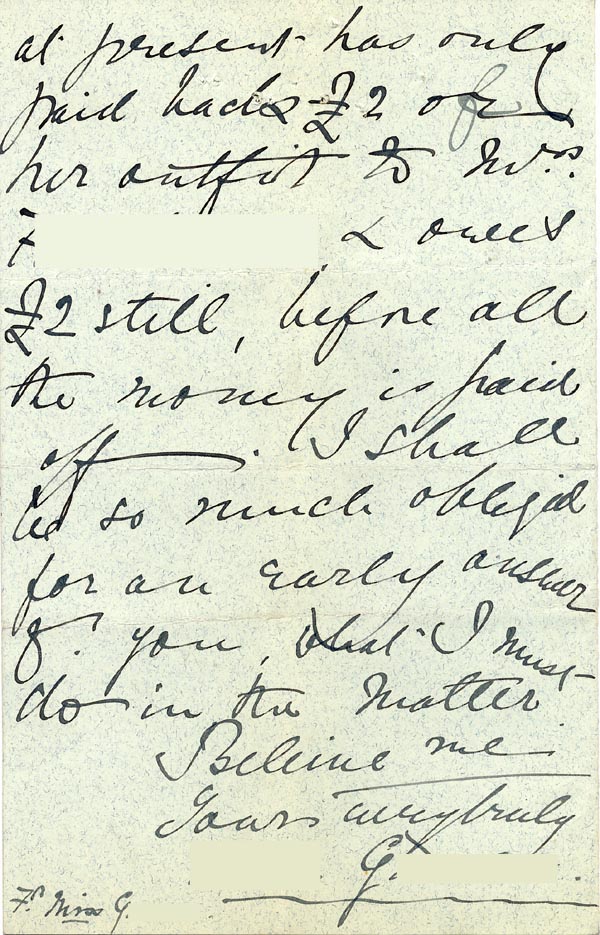 at present has only
paid back £2 of
her outfit to Mrs.
F & owes
£2 still, before all
the money is paid
off. I shall
be so much obliged
for an early answer
fr. you, what I must
do in the matter
Believe me
Yours very truly
G.
Fr Miss G.